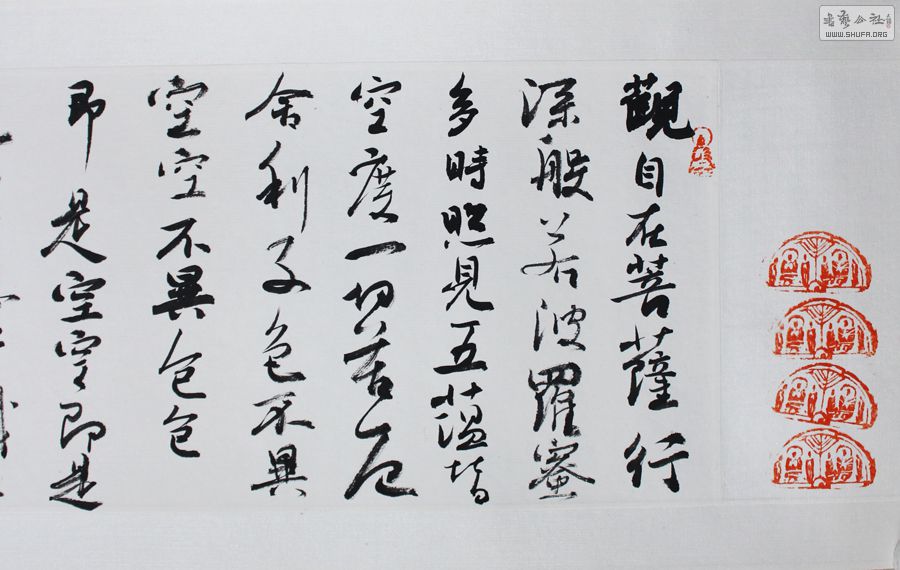 觀自在菩薩行
深般若波羅蜜
多時照見五蘊皆
空度一切苦厄
舍利子色不異
空空不異色色
即是空空即是
書藝公社
WWW.SHUFA.ORG